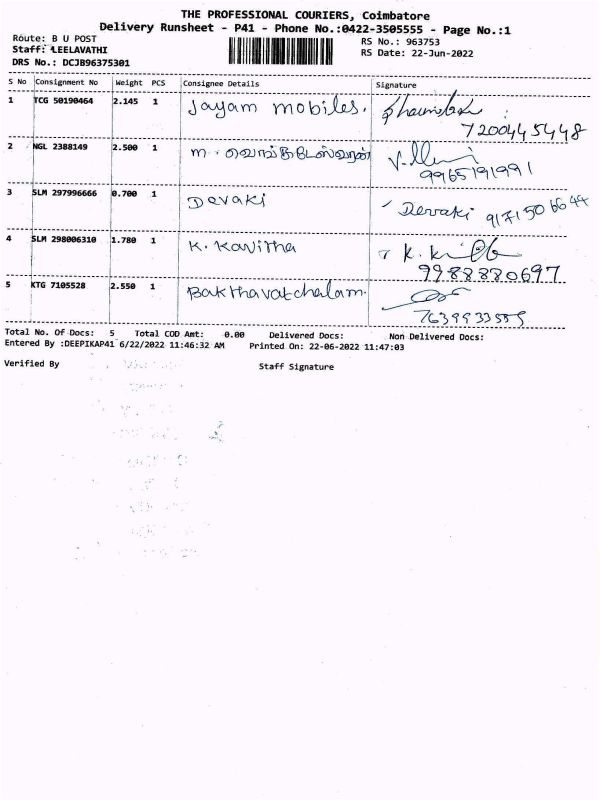 THE PROFESSIONAL COURIERS, Coimbatore
Delivery Runsheet - P41 - Phone No.:0422-3505555 - Page No.:1
Route: B U POST RS No.: 963753
Staff: LEELAVATHI RS Date: 22-Jun-2022
DRS No.: DCJB96375301
S No Consignment No Weight PCS Consignee Details Signature
1 TCG 50190464 2.145 1 Jayam mobiles.
7200445448
2 NGL 2388149 2.500 1 m. வெங்கடேஸ்வரன்
9965191991
3 SLM 297996666 0.700 1 Devaki Devaki 9171506644
4 SLM 298006310 1.780 1 K. Kavitha K.
9988880697
5 KTG 7105528 2.550 1 Bakthavatchalam.
7639933555
Total No. Of Docs: 5 Total COD Amt: 0.00 Delivered Docs: Non Delivered Docs:
Entered By :DEEPIKAP41 6/22/2022 11:46:32 AM Printed On: 22-06-2022 11:47:03
Verified By Staff Signature